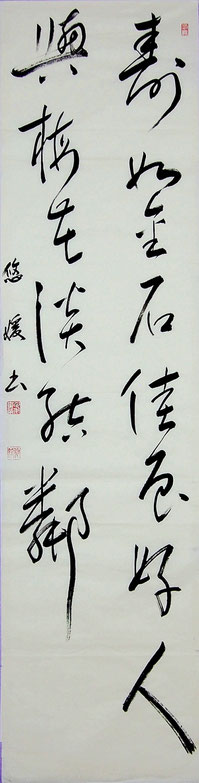 壽如金石佳且好人
與梅花淡結鄰
悠媛书